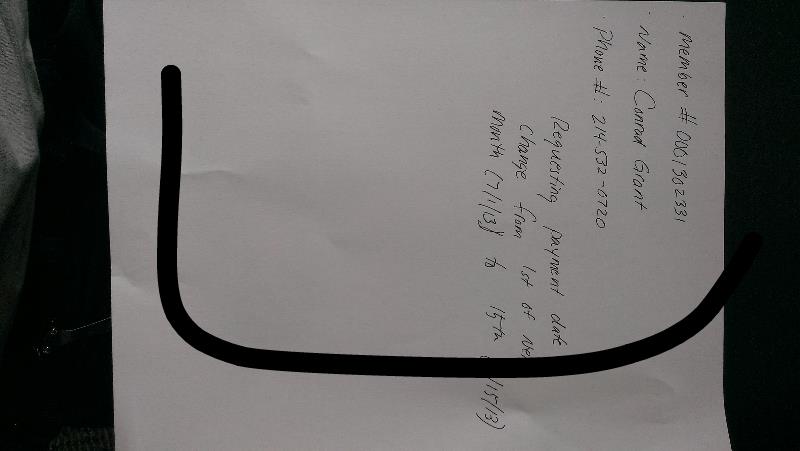 · Member # 0001302331
· Name: Conrad Grant
· Phone #: 214-532-0720
Requesting payment date
change from 1st of
month (7/1/13) to 15th /15/13)